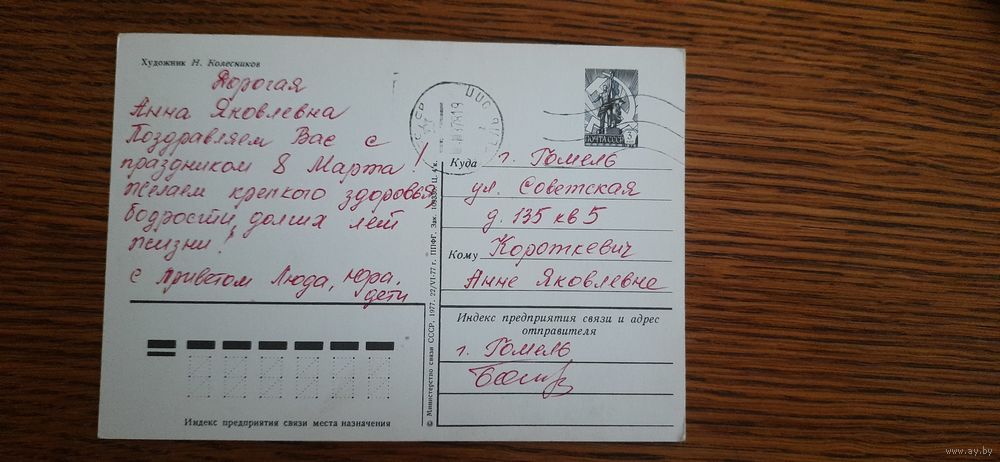 Художник Н. Колесников
Дорогая
Анна Яковлевна
Поздравляем Вас с
праздником 8 Марта!
Желаем крепкого здоровья
бодрости, долгих лет
жизни!
с приветом Люда, Юра,
дети
Индекс предприятия связи места назначения
© Министерство связи СССР, 1977. 22/VI-77 г. ППФГ. Зак. Ц. 4 к.
ПОЧТА СССР
Куда г. Гомель
ул. Советская
д. 135 кв 5
Кому Короткевич
Анне Яковлевне
Индекс предприятия связи и адрес
отправителя
г. Гомель
www.ay.by